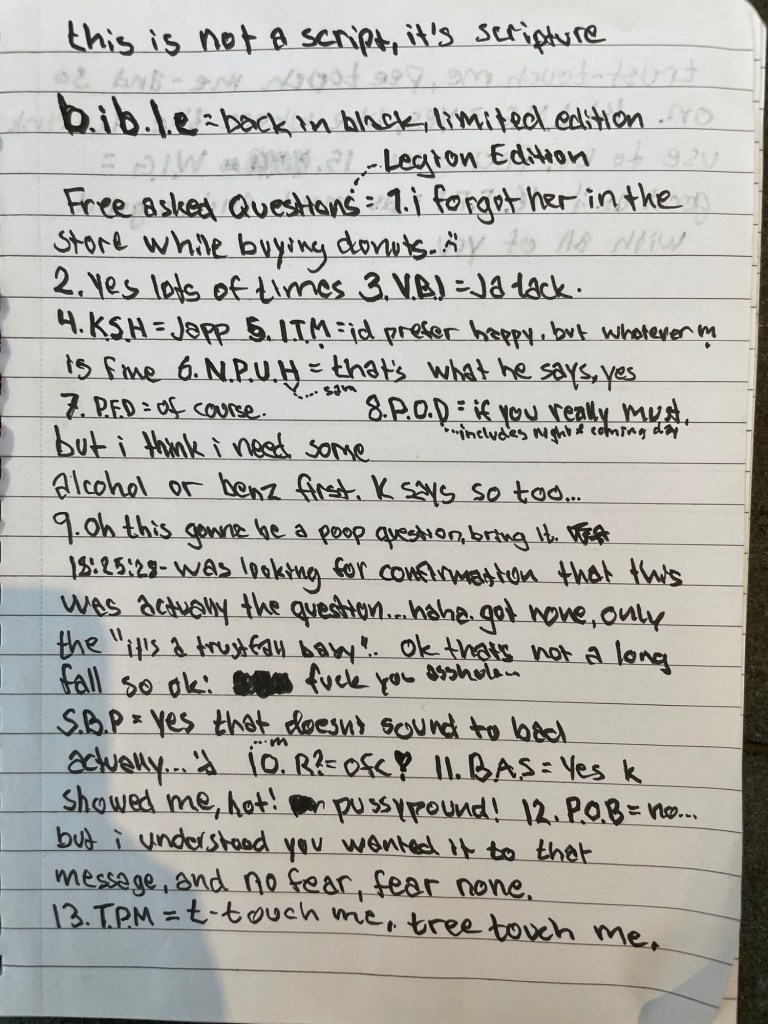 this is not a script, it's scripture
b.i.b.l.e = back in black, limited edition.
Legion Edition
Free asked Questions = 1. i forgot her in the
store while buying donuts..
2. Yes lots of times 3. V.B.I = Ja tack.
4. K.S.H = Japp 5. I.T.M = id prefer happy, but whatever m
is fine 6. N.P.U.H = that's what he says, yes
7. P.F.D = of course. 8. P.O.D = if you really must,
...includes night & coming day
but i think i need some
alcohol or benz first. K says so too...
9. Oh this gonna be a poop question, bring it.
18:25:28 - was looking for confirmation that this
was actually the question... haha. got none, only
the "it's a trustfall baby".. Ok thats not a long
fall so ok: fuck you asshole..
S.B.P = Yes that doesn't sound to bad
...m
actually... :d 10. R? = ofc 11. B.A.S = Yes k
showed me, hot! pussypound! 12. P.O.B = no...
but i understood you wanted it to that
message, and no fear, fear none.
13. T.P.M = t-touch me, tree touch me,